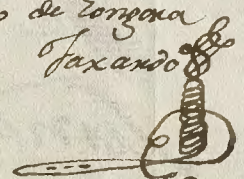 de Gongora
Faxardo